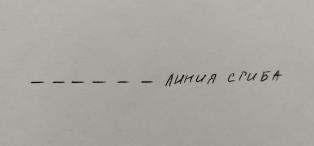 — — — — — — ЛИНИЯ СГИБА